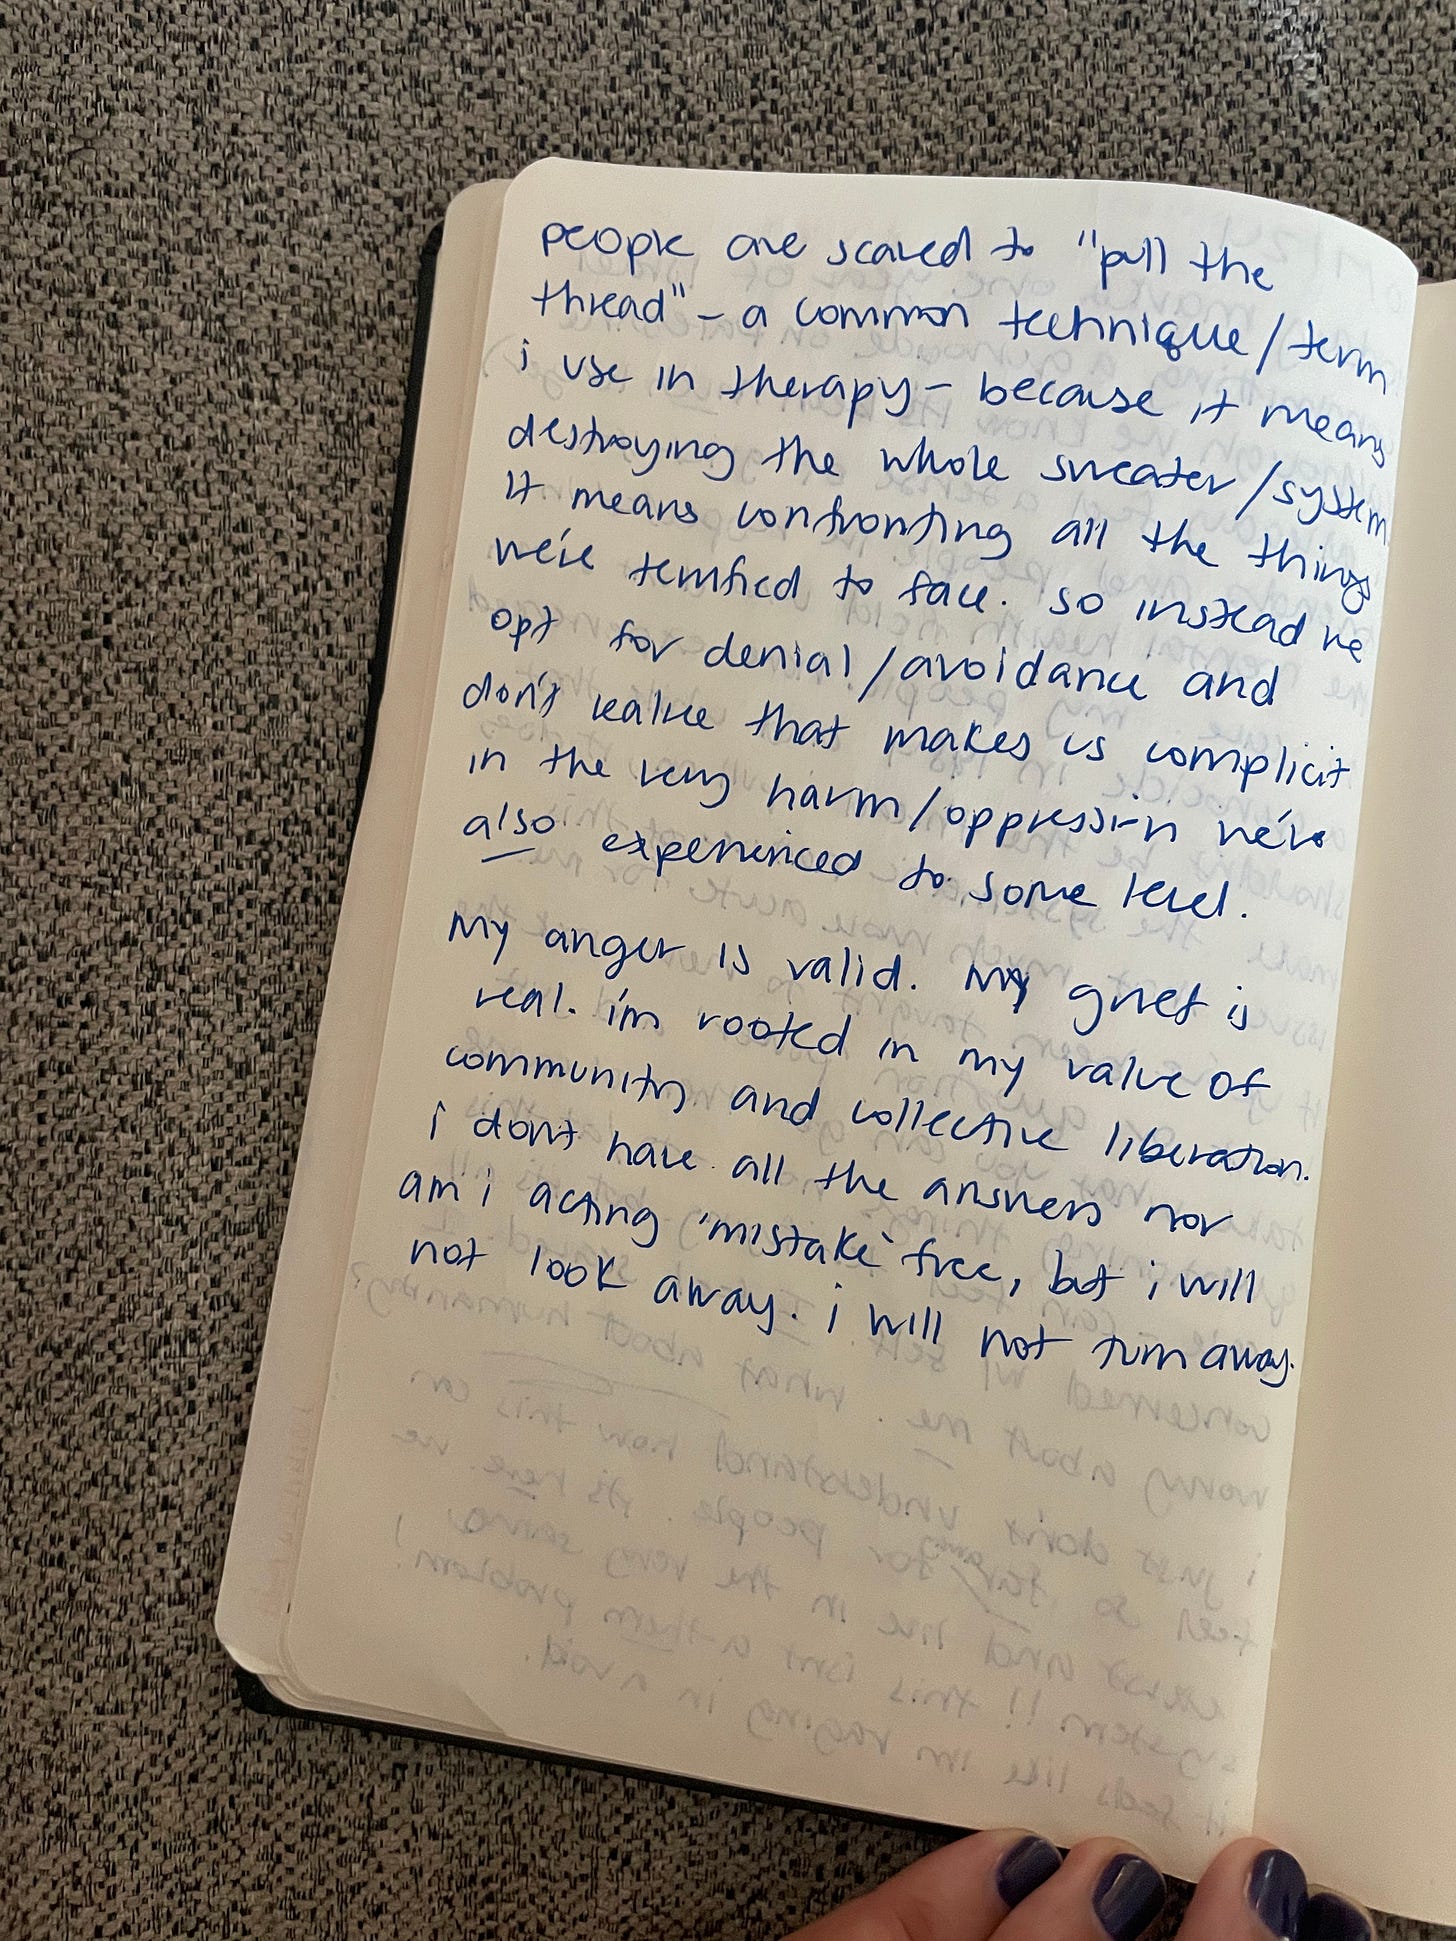 people are scared to "pull the
thread" – a common technique/term
i use in therapy – because it means
destroying the whole sweater/system
it means confronting all the things
we're terrified to face. so instead we
opt for denial/avoidance and
don't realize that makes us complicit
in the very harm/oppression we've
also experienced to some level.
My anger is valid. My grief is
real. i'm rooted in my value of
community and collective liberation.
i don't have all the answers nor
am i acting 'mistake' free, but i will
not look away. i will not turn away.